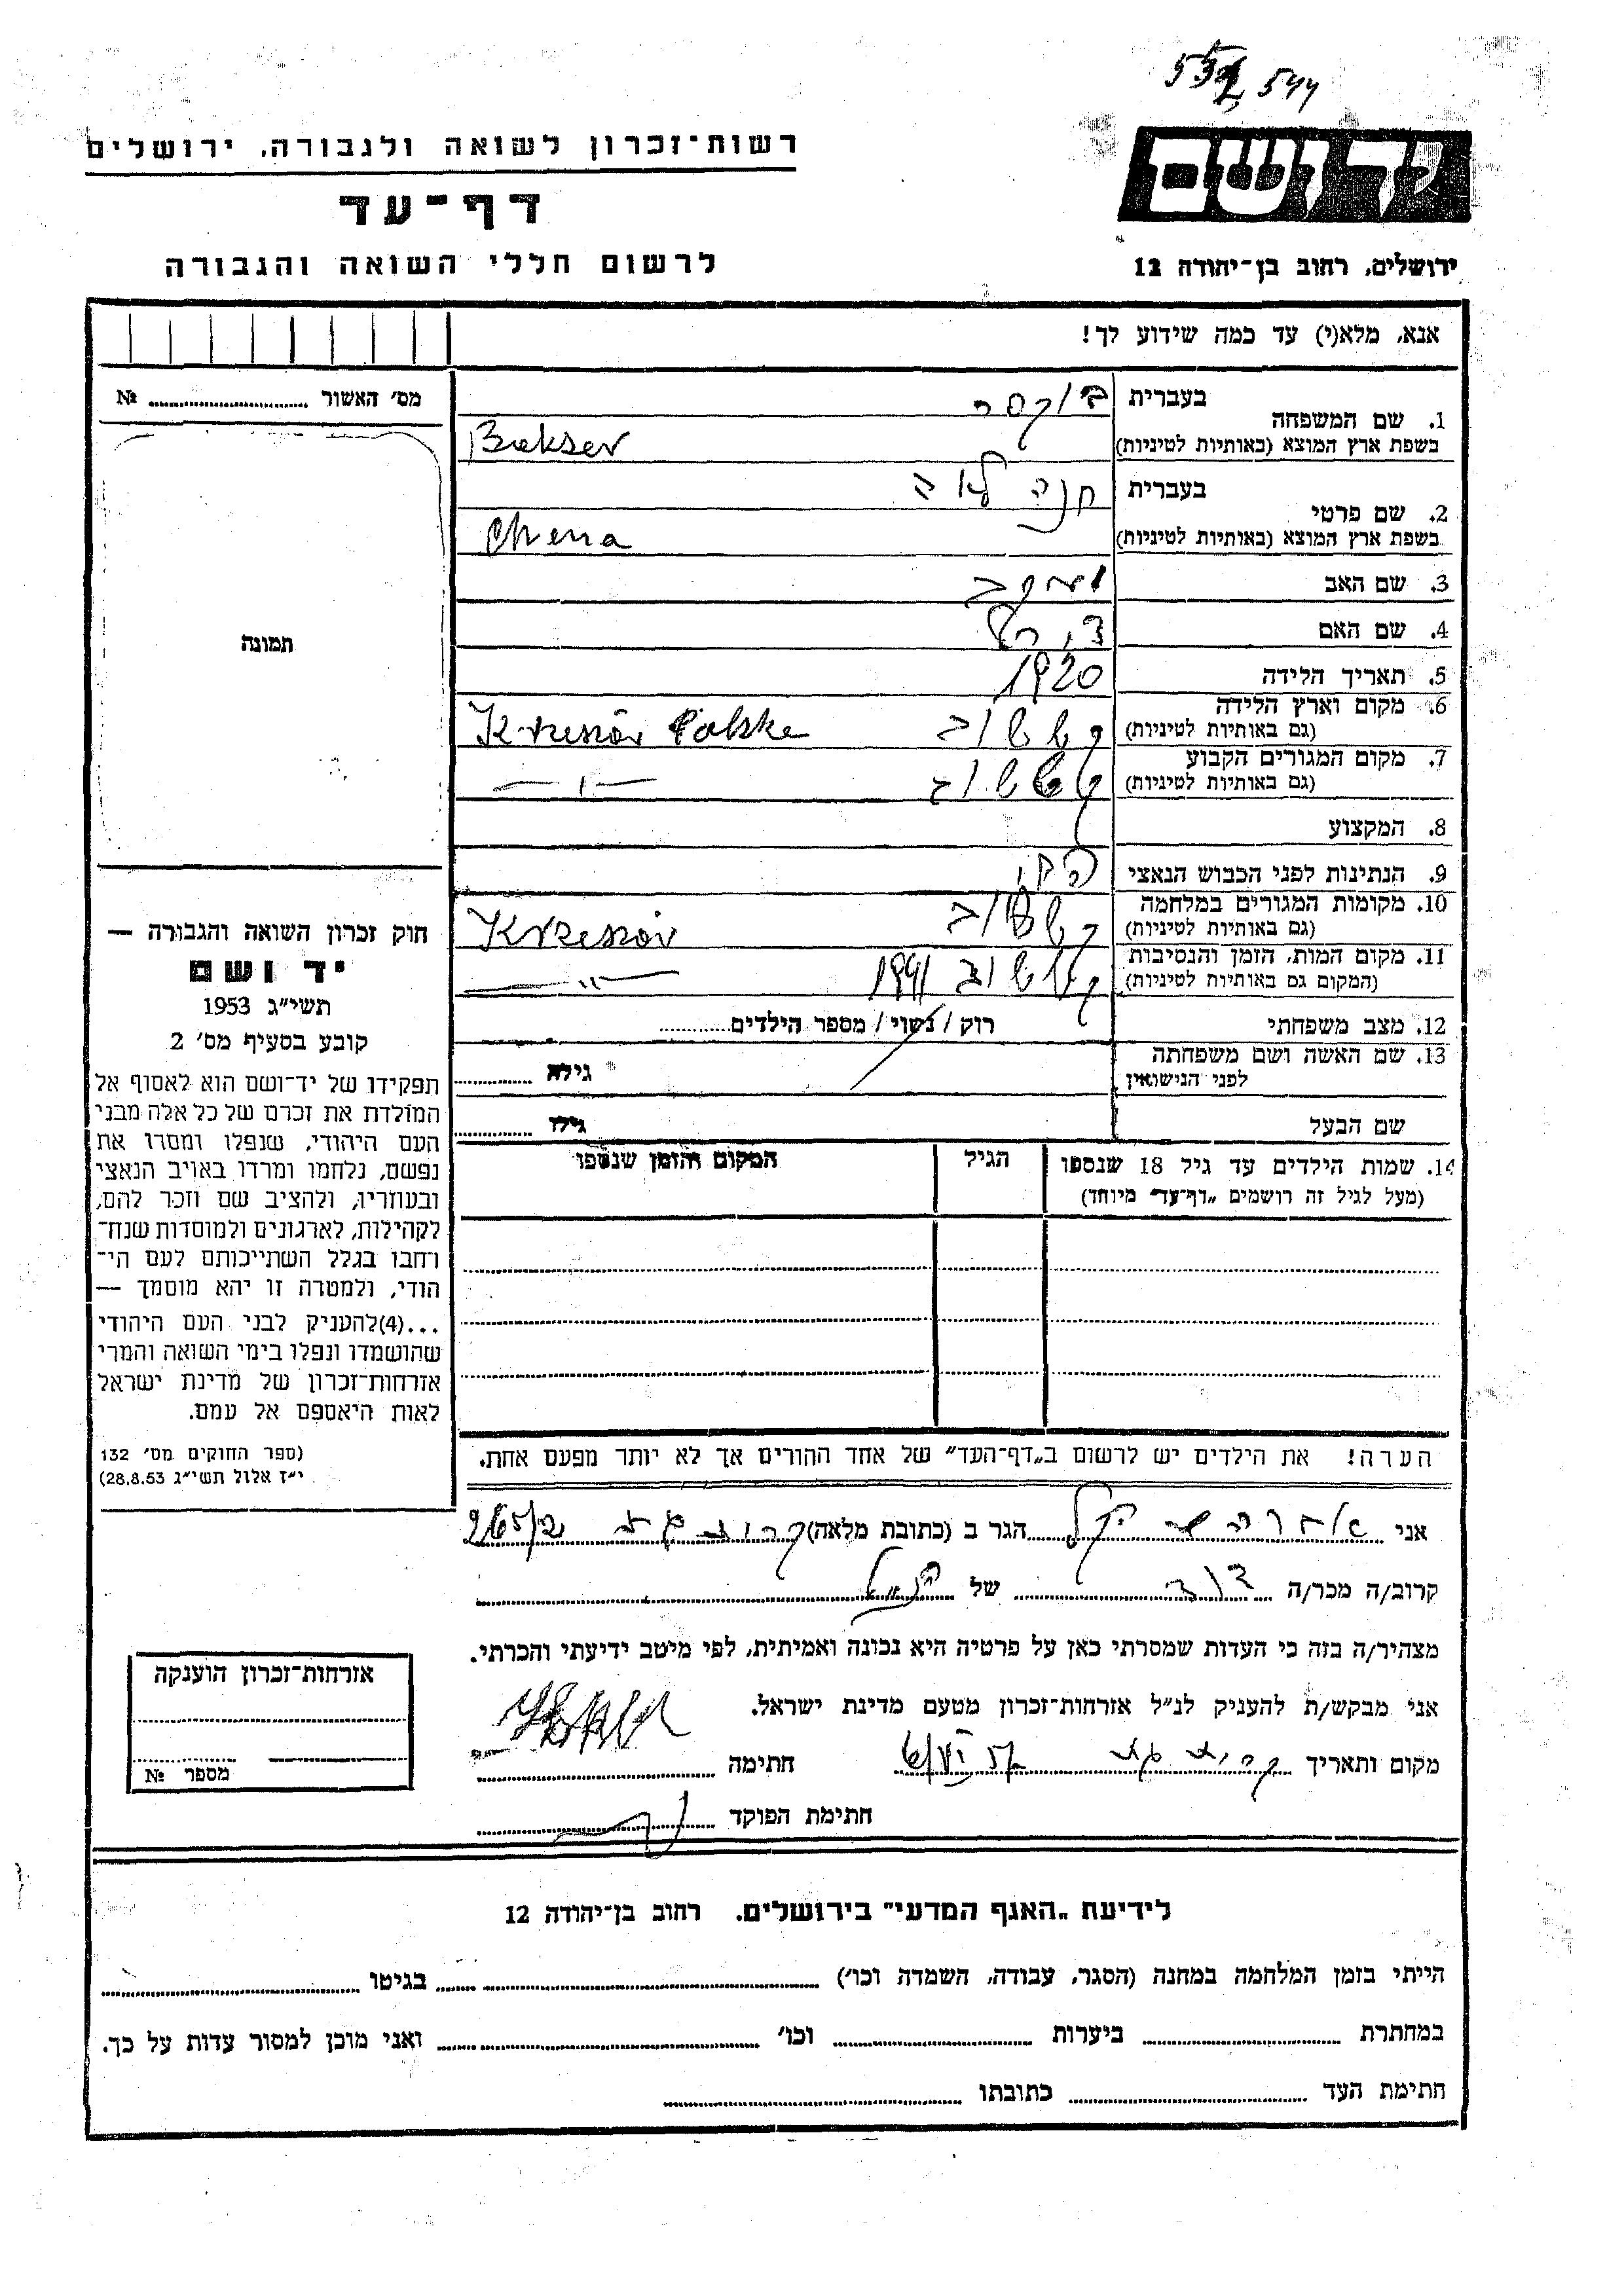 532,544
ידושם
רשות־זכרון לשואה ולגבורה, ירושלים
דף־עד
לרשום חללי השואה והגבורה
ירושלים, רחוב בן־יהודה 12
אנא, מלא(י) עד כמה שידוע לך!
מס׳ האשור № ........
תמונה
1. שם המשפחה
בעברית
בוקסר
בשפת ארץ המוצא (באותיות לטיניות)
Bukser
2. שם פרטי
בעברית
חנה לאה
בשפת ארץ המוצא (באותיות לטיניות)
Chena
3. שם האב יעקב
4. שם האם
5. תאריך הלידה 1920
6. מקום וארץ הלידה
(גם באותיות לטיניות)
קששוב Krzeszów Polska
7. מקום המגורים הקבוע
(גם באותיות לטיניות)
קששוב —ו—
8. המקצוע
9. הנתינות לפני הכבוש הנאצי
10. מקומות המגורים במלחמה
(גם באותיות לטיניות)
קששוב Krzeszów
11. מקום המות, הזמן והנסיבות
(המקום גם באותיות לטיניות)
1941 —״—
12. מצב משפחתי רוק / נשוי / מספר הילדים........
13. שם האשה ושם משפחתה
לפני הנישואין
גילה ........
שם הבעל גילו ........
14. שמות הילדים עד גיל 18 שנספו
(מעל לגיל זה רושמים „דף־עד״ מיוחד)
הגיל
המקום והזמן שנספו
חוק זכרון השואה והגבורה —
יד ושם
תשי״ג 1953
קובע בסעיף מס׳ 2
תפקידו של יד־ושם הוא לאסוף אל
המולדת את זכרם של כל אלה מבני
העם היהודי, שנפלו ומסרו את
נפשם, נלחמו ומרדו באויב הנאצי
ובעוזריו, ולהציב שם וזכר להם,
לקהילות, לארגונים ולמוסדות שנח־
רחבו בגלל השתייכותם לעם הי־
הודי, ולמטרה זו יהא מוסמך —
...(4)להעניק לבני העם היהודי
שהושמדו ונפלו בימי השואה והמרי
אזרחות־זכרון של מדינת ישראל
לאות היאספם אל עמם.
(ספר החוקים מס׳ 132
י״ז אלול תשי״ג 28.8.53)
הערה! את הילדים יש לרשום ב„דף־העד״ של אחד ההורים אך לא יותר מפעם אחת.
אני הגר ב (כתובת מלאה) 265/2
קרוב/ה מכר/ה דוד של הנ״ל
מצהיר/ה בזה כי העדות שמסרתי כאן על פרטיה היא נכונה ואמיתית, לפי מיטב ידיעתי והכרתי.
אני מבקש/ת להעניק לנ״ל אזרחות־זכרון מטעם מדינת ישראל.
מקום ותאריך חתימה
חתימת הפוקד
אזרחות־זכרון הוענקה
מספר №
לידיעת „האגף המדעי״ בירושלים. רחוב בן־יהודה 12
הייתי בזמן המלחמה במחנה (הסגר, עבודה, השמדה וכו׳) ........ בגיטו ........
במחתרת ........ ביערות ........ וכו׳ ........ ואני מוכן למסור עדות על כך.
חתימת העד ........ כתובתו ........